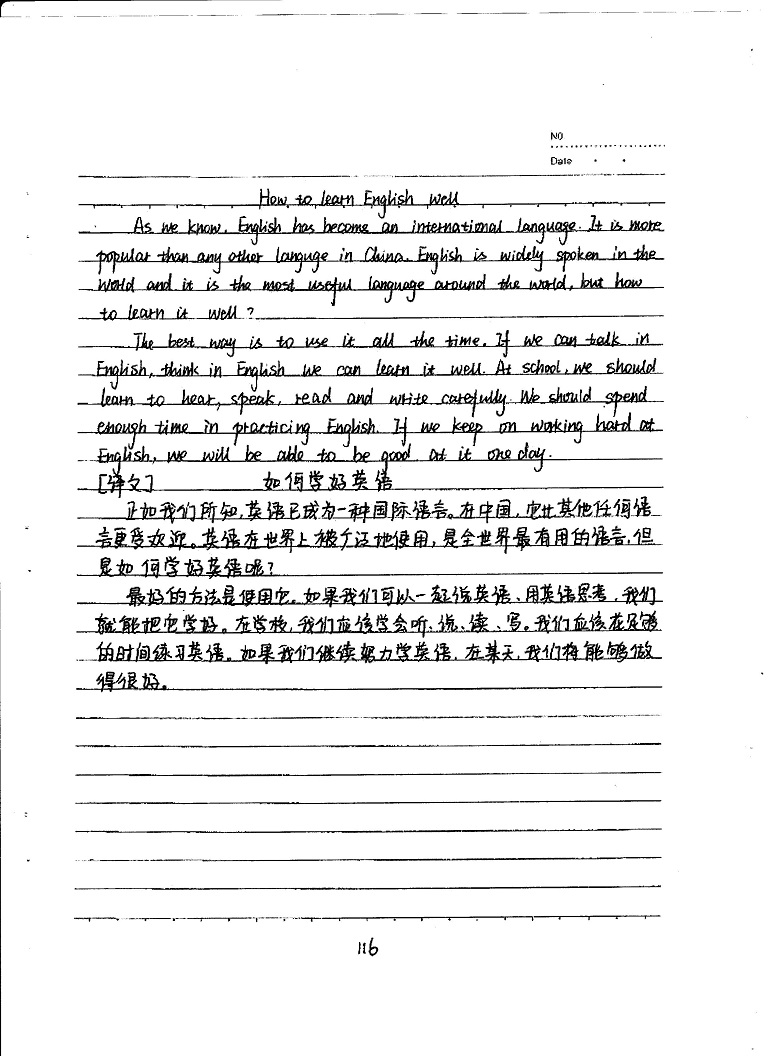 NO
Date
How to learn English well
As we know, English has become an international language. It is more
popular than any other languge in China. English is widely spoken in the
world and it is the most useful language around the world, but how
to learn it well?
The best way is to use it all the time. If we can talk in
English, think in English we can learn it well. At school, we should
learn to hear, speak, read and write carefully. We should spend
enough time in practicing English. If we keep on working hard at
English, we will be able to be good at it one day.
[译文] 如何学好英语
正如我们所知,英语已成为一种国际语言。在中国,它比其他任何语
言更受欢迎。英语在世界上被广泛地使用,是全世界最有用的语言,但
是如何学好英语呢?
最好的方法是使用它。如果我们可以一起说英语、用英语思考,我们
就能把它学好。在学校,我们应该学会听、说、读、写。我们应该花足够
的时间练习英语。如果我们继续努力学英语,在某天,我们将能够做
得很好。
116